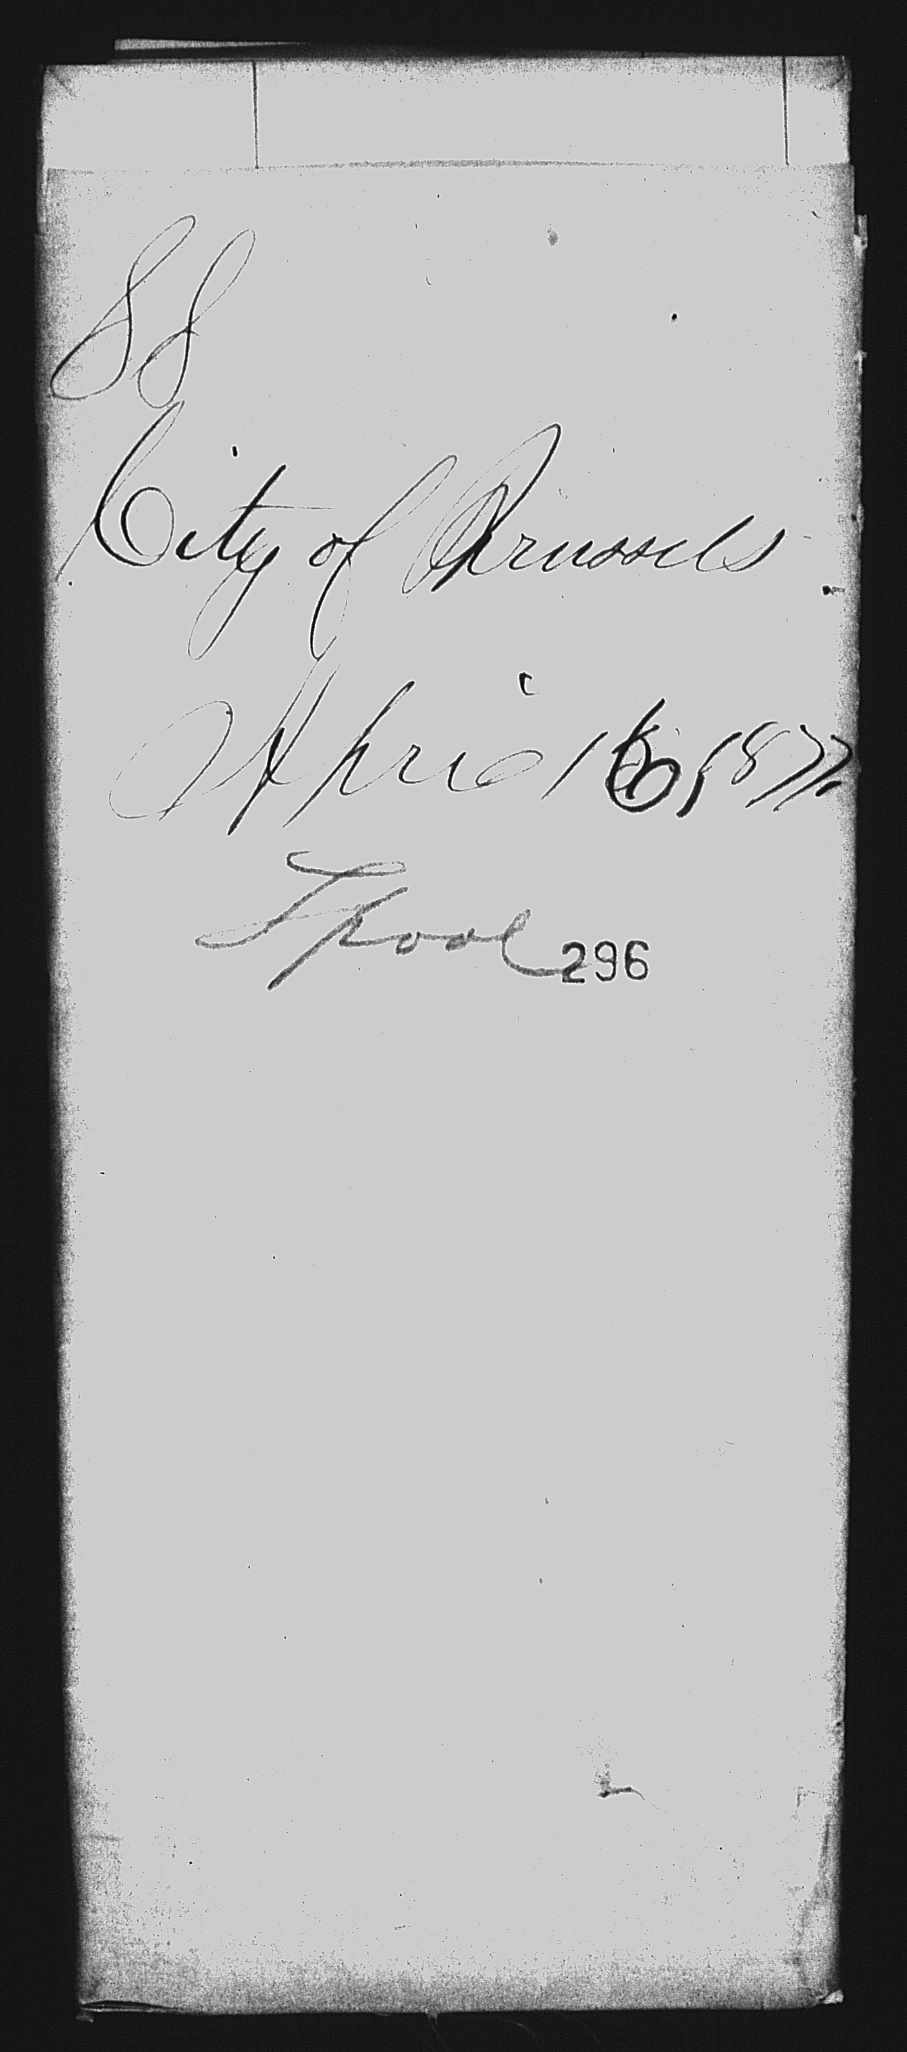 SS
City of Brussels
April 16, 1877.
Liverpool 296